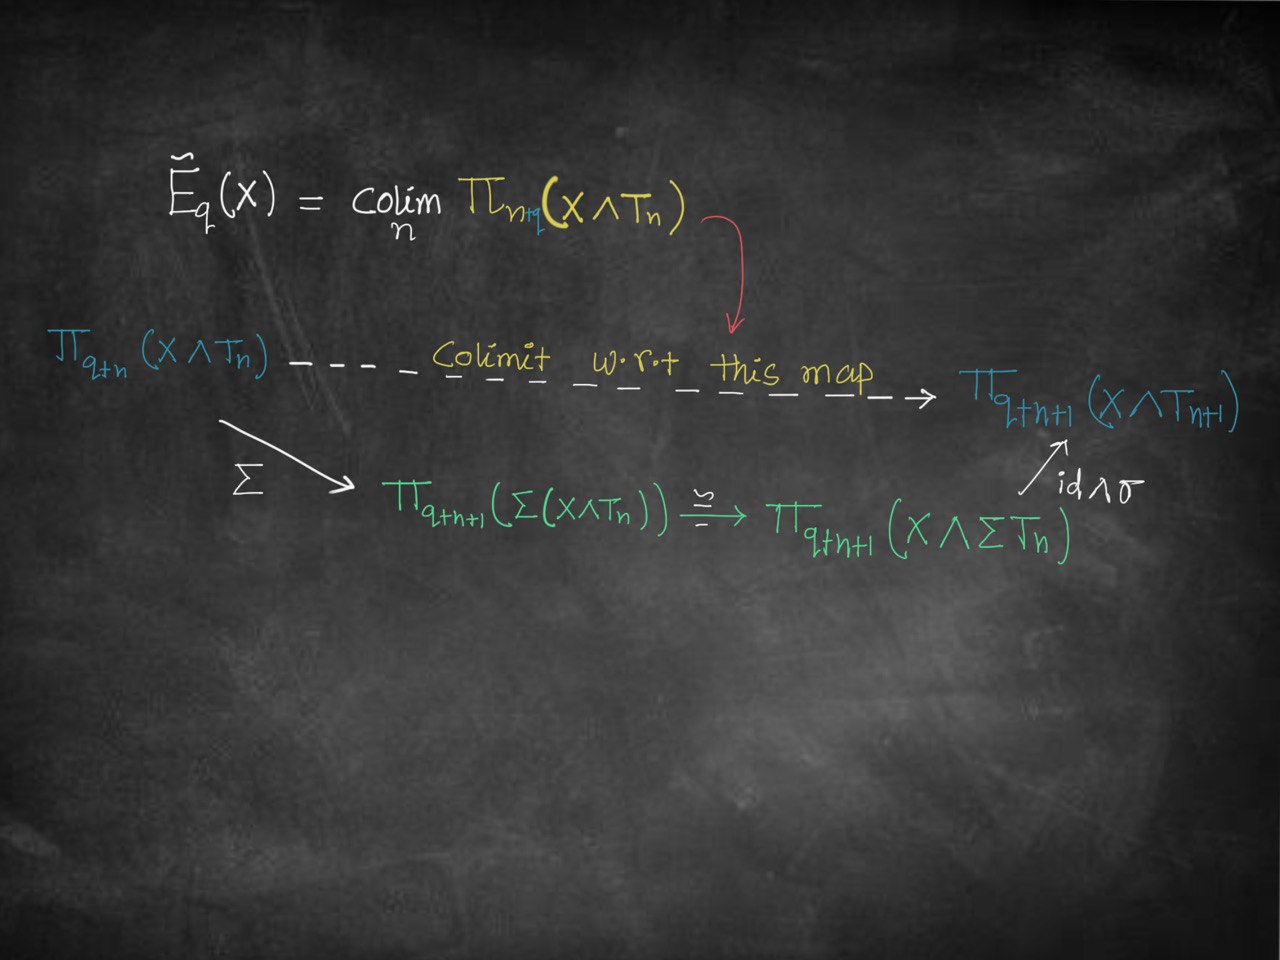 Ẽ_q(X) = colim_n π_{n+q}(X∧T_n)
π_{q+n}(X∧T_n) colimit w.r.t this map π_{q+n+1}(X∧T_{n+1})
Σ π_{q+n+1}(Σ(X∧T_n)) ≅→ π_{q+n+1}(X∧ΣT_n) id∧σ